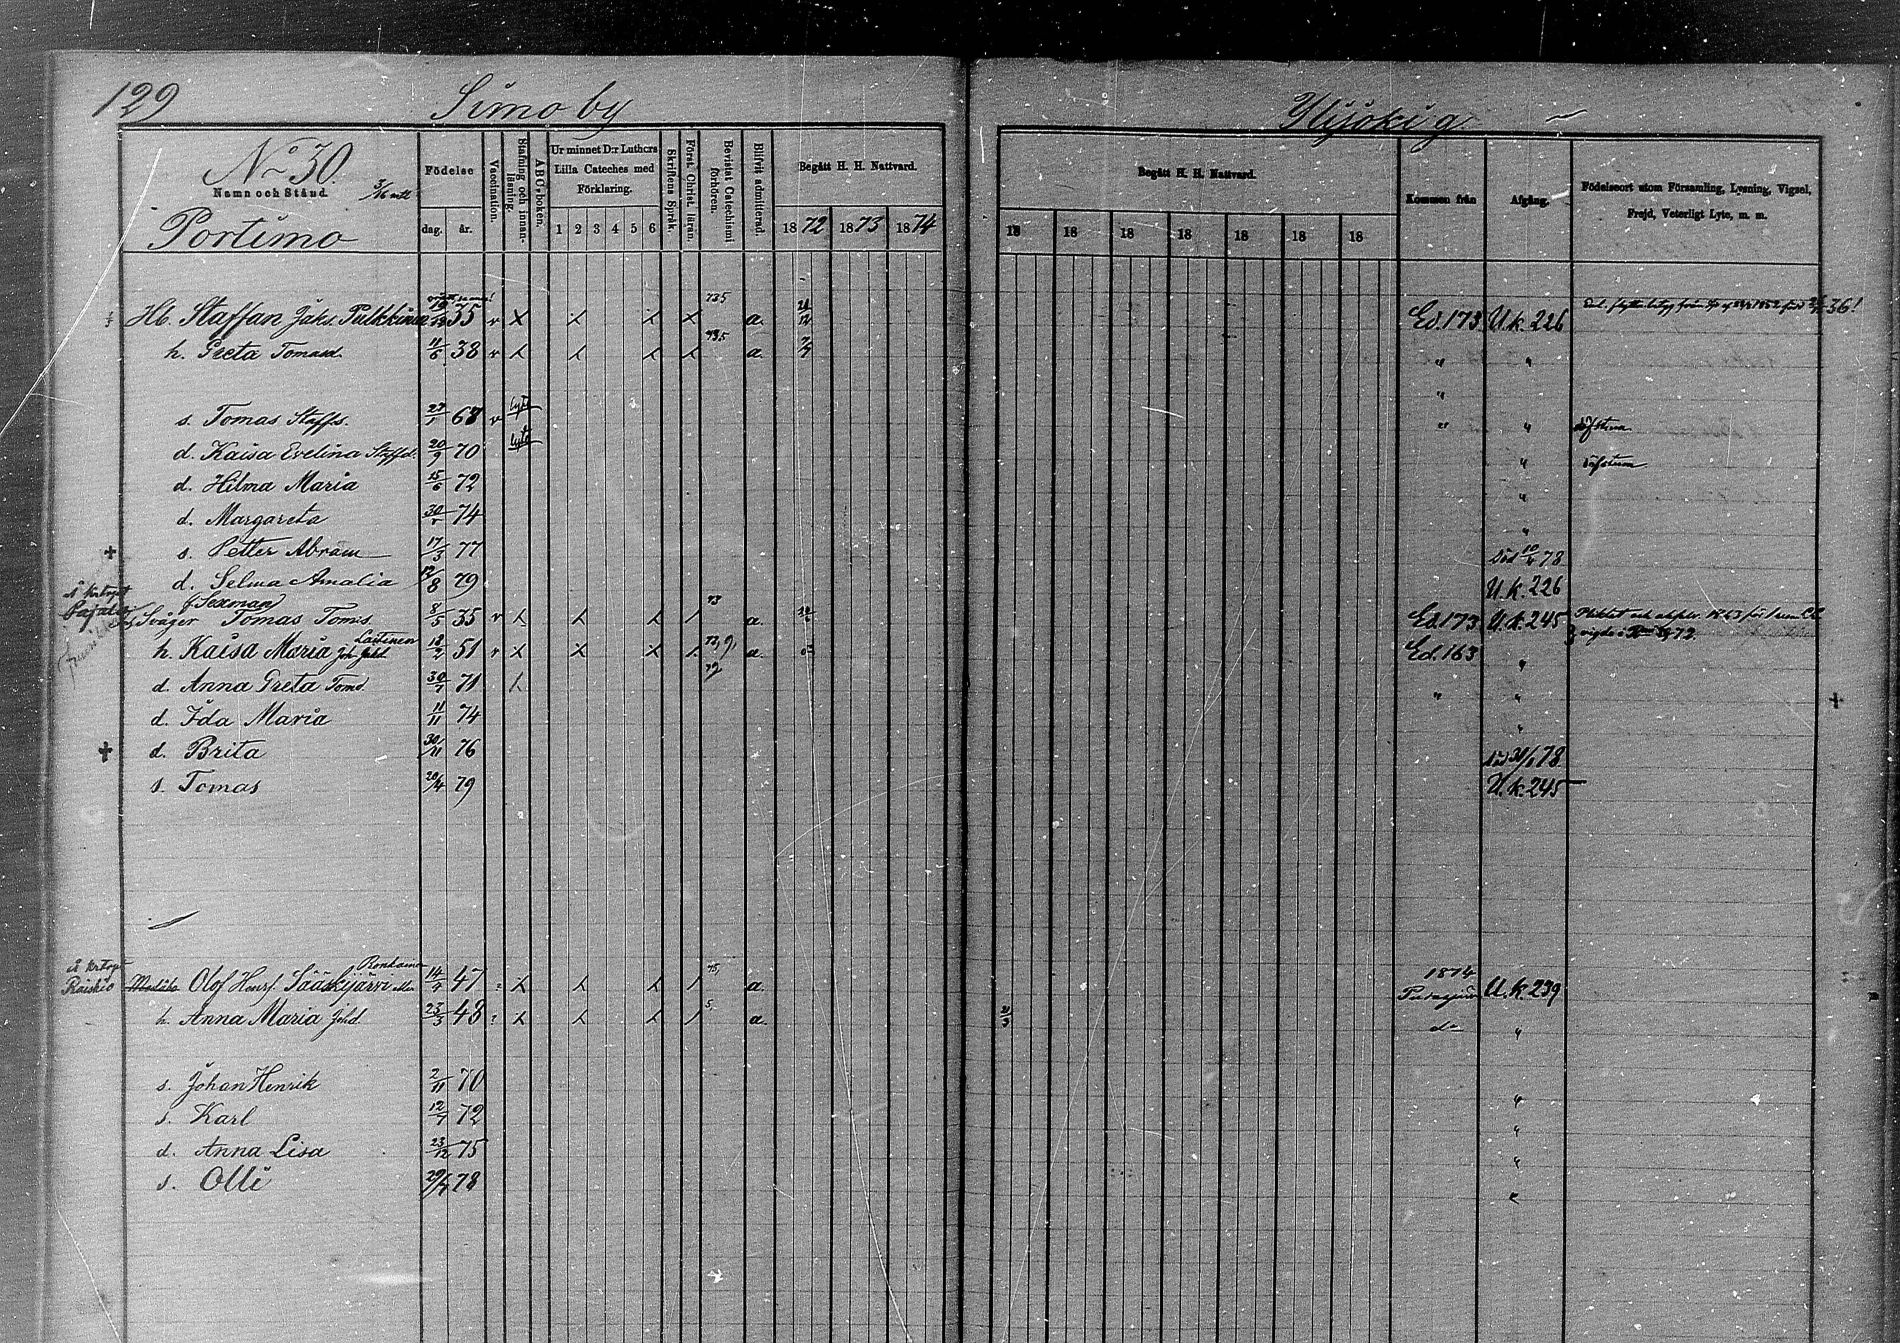 129 Simo by Ylijoki g.
No 30. 3/16 mtl
Namn och Stånd.
Portimo
Födelse
dag. år.
Vaccination.
Stafning och innan-läsning.
ABC-boken.
Ur minnet D:r Luthers Lilla Cateches med Förklaring.
1 2 3 4 5 6
Skriftens Språk.
Först. Christ. läran.
Bevistat Catechismi förhören.
Blifvit admitterad.
Begått H. H. Nattvard.
1872 1873 1874
Begått H. H. Nattvard.
18 18 18 18 18 18 18
Kommen från
Afgång.
Födelseort utom Församling, Lysning, Vigsel,
Frejd, Veterligt Lyte, m. m.
Hb. Staffan Jaks. Pulkkinen 35 v x a. Ed. 173 U.k. 226 36!
h. Greta Tomasd. 11/6 38 v a. " "
"
s. Tomas Staffs. 68 v lyte " "
d. Kaisa Evelina Staffd. 20/9 70 lyte " döfstum
d. Hilma Maria 15/6 72 "
d. Margareta 74 "
+ s. Petter Abram 17/3 77 död 78
d. Selma Amalia 12/8 79 U.k. 226
f. Sexman
Svåger Tomas Toms. 8/5 35 v 73 a. Ed. 173 U.k. 245
h. Kaisa Maria Joh. Johd. Laitinen 51 v x a. Ed. 163 "
d. Anna Greta Tomd. 71 " "
d. Ida Maria 11/11 74 "
+ d. Brita 30/11 76 död 78
s. Tomas 20/4 79 U.k. 245
å krtorpet
Räiskiö
Olof Henrs. Sääskijärvi 14/7 47 a 1874 U.k. 239
h. Anna Maria Johd. 23/3 48 a. do "
s. Johan Henrik 2/11 70 "
s. Karl 12/7 72 "
d. Anna Lisa 23/12 75 "
s. Olli 78 "